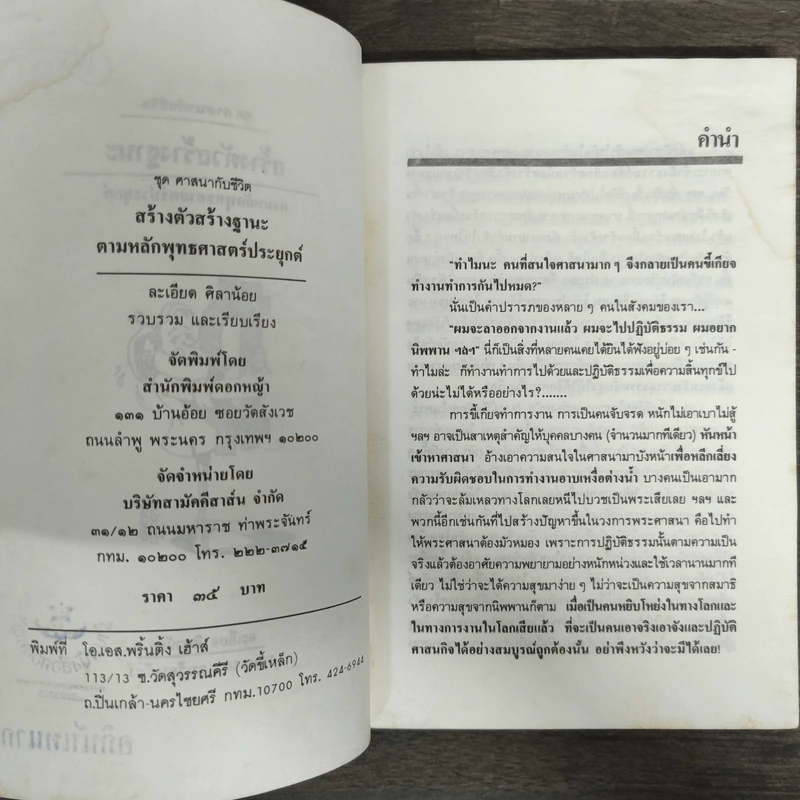 ชุด ศาสนากับชีวิต
สร้างตัวสร้างฐานะ
ตามหลักพุทธศาสตร์ประยุกต์
ละเอียด ศิลาน้อย
รวบรวม และเรียบเรียง
จัดพิมพ์โดย
สำนักพิมพ์ดอกหญ้า
๑๓๑ บ้านอ้อย ซอยวัดสังเวช
ถนนลำพู พระนคร กรุงเทพฯ ๑๐๒๐๐
จัดจำหน่ายโดย
บริษัทสามัคคีสาส์น จำกัด
๓๑/๑๒ ถนนมหาราช ท่าพระจันทร์
กทม. ๑๐๒๐๐ โทร. ๒๒๒-๓๗๑๕
ราคา ๓๕ บาท
พิมพ์ที่ โอ.เอส.พริ้นติ้ง เฮ้าส์
113/13 ซ.วัดสุวรรณคีรี (วัดขี้เหล็ก)
ถ.ปิ่นเกล้า-นครไชยศรี กทม.10700 โทร. 424-6944
คำนำ
"ทำไมนะ คนที่สนใจศาสนามาก ๆ จึงกลายเป็นคนขี้เกียจ
ทำงานทำการกันไปหมด?"
นั่นเป็นคำปรารภของหลาย ๆ คนในสังคมของเรา...
"ผมจะลาออกจากงานแล้ว ผมจะไปปฏิบัติธรรม ผมอยาก
นิพพาน ฯลฯ" นี่ก็เป็นสิ่งที่หลายคนเคยได้ยินได้ฟังอยู่บ่อย ๆ เช่นกัน -
ทำไมล่ะ ก็ทำงานทำการไปด้วยและปฏิบัติธรรมเพื่อความสิ้นทุกข์ไป
ด้วยน่ะไม่ได้หรืออย่างไร?.......
การขี้เกียจทำการงาน การเป็นคนจับจรด หนักไม่เอาเบาไม่สู้
ฯลฯ อาจเป็นสาเหตุสำคัญให้บุคคลบางคน (จำนวนมากทีเดียว) หันหน้า
เข้าหาศาสนา อ้างเอาความสนใจในศาสนามาบังหน้าเพื่อหลีกเลี่ยง
ความรับผิดชอบในการทำงานอาบเหงื่อต่างน้ำ บางคนเป็นเอามาก
กลัวว่าจะล้มเหลวทางโลกเลยหนีไปบวชเป็นพระเสียเลย ฯลฯ และ
พวกนี้อีกเช่นกันที่ไปสร้างปัญหาขึ้นในวงการพระศาสนา คือไปทำ
ให้พระศาสนาต้องมัวหมอง เพราะการปฏิบัติธรรมนั้นตามความเป็น
จริงแล้วต้องอาศัยความพยายามอย่างหนักหน่วงและใช้เวลานานมากที
เดียว ไม่ใช่ว่าจะได้ความสุขมาง่าย ๆ ไม่ว่าจะเป็นความสุขจากสมาธิ
หรือความสุขจากนิพพานก็ตาม เมื่อเป็นคนหยิบโหย่งในทางโลกและ
ในทางการงานในโลกเสียแล้ว ที่จะเป็นคนเอาจริงเอาจังและปฏิบัติ
ศาสนกิจได้อย่างสมบูรณ์ถูกต้องนั้น อย่าพึงหวังว่าจะมีได้เลย!